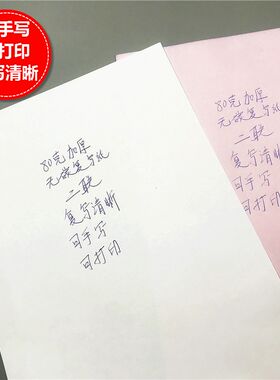 手写
打印
写清晰
80克加厚
无碳复写纸
二联
复写清晰
可手写
可打印
80克加厚
无碳复写纸
二联
复写清晰
可手写
可打印